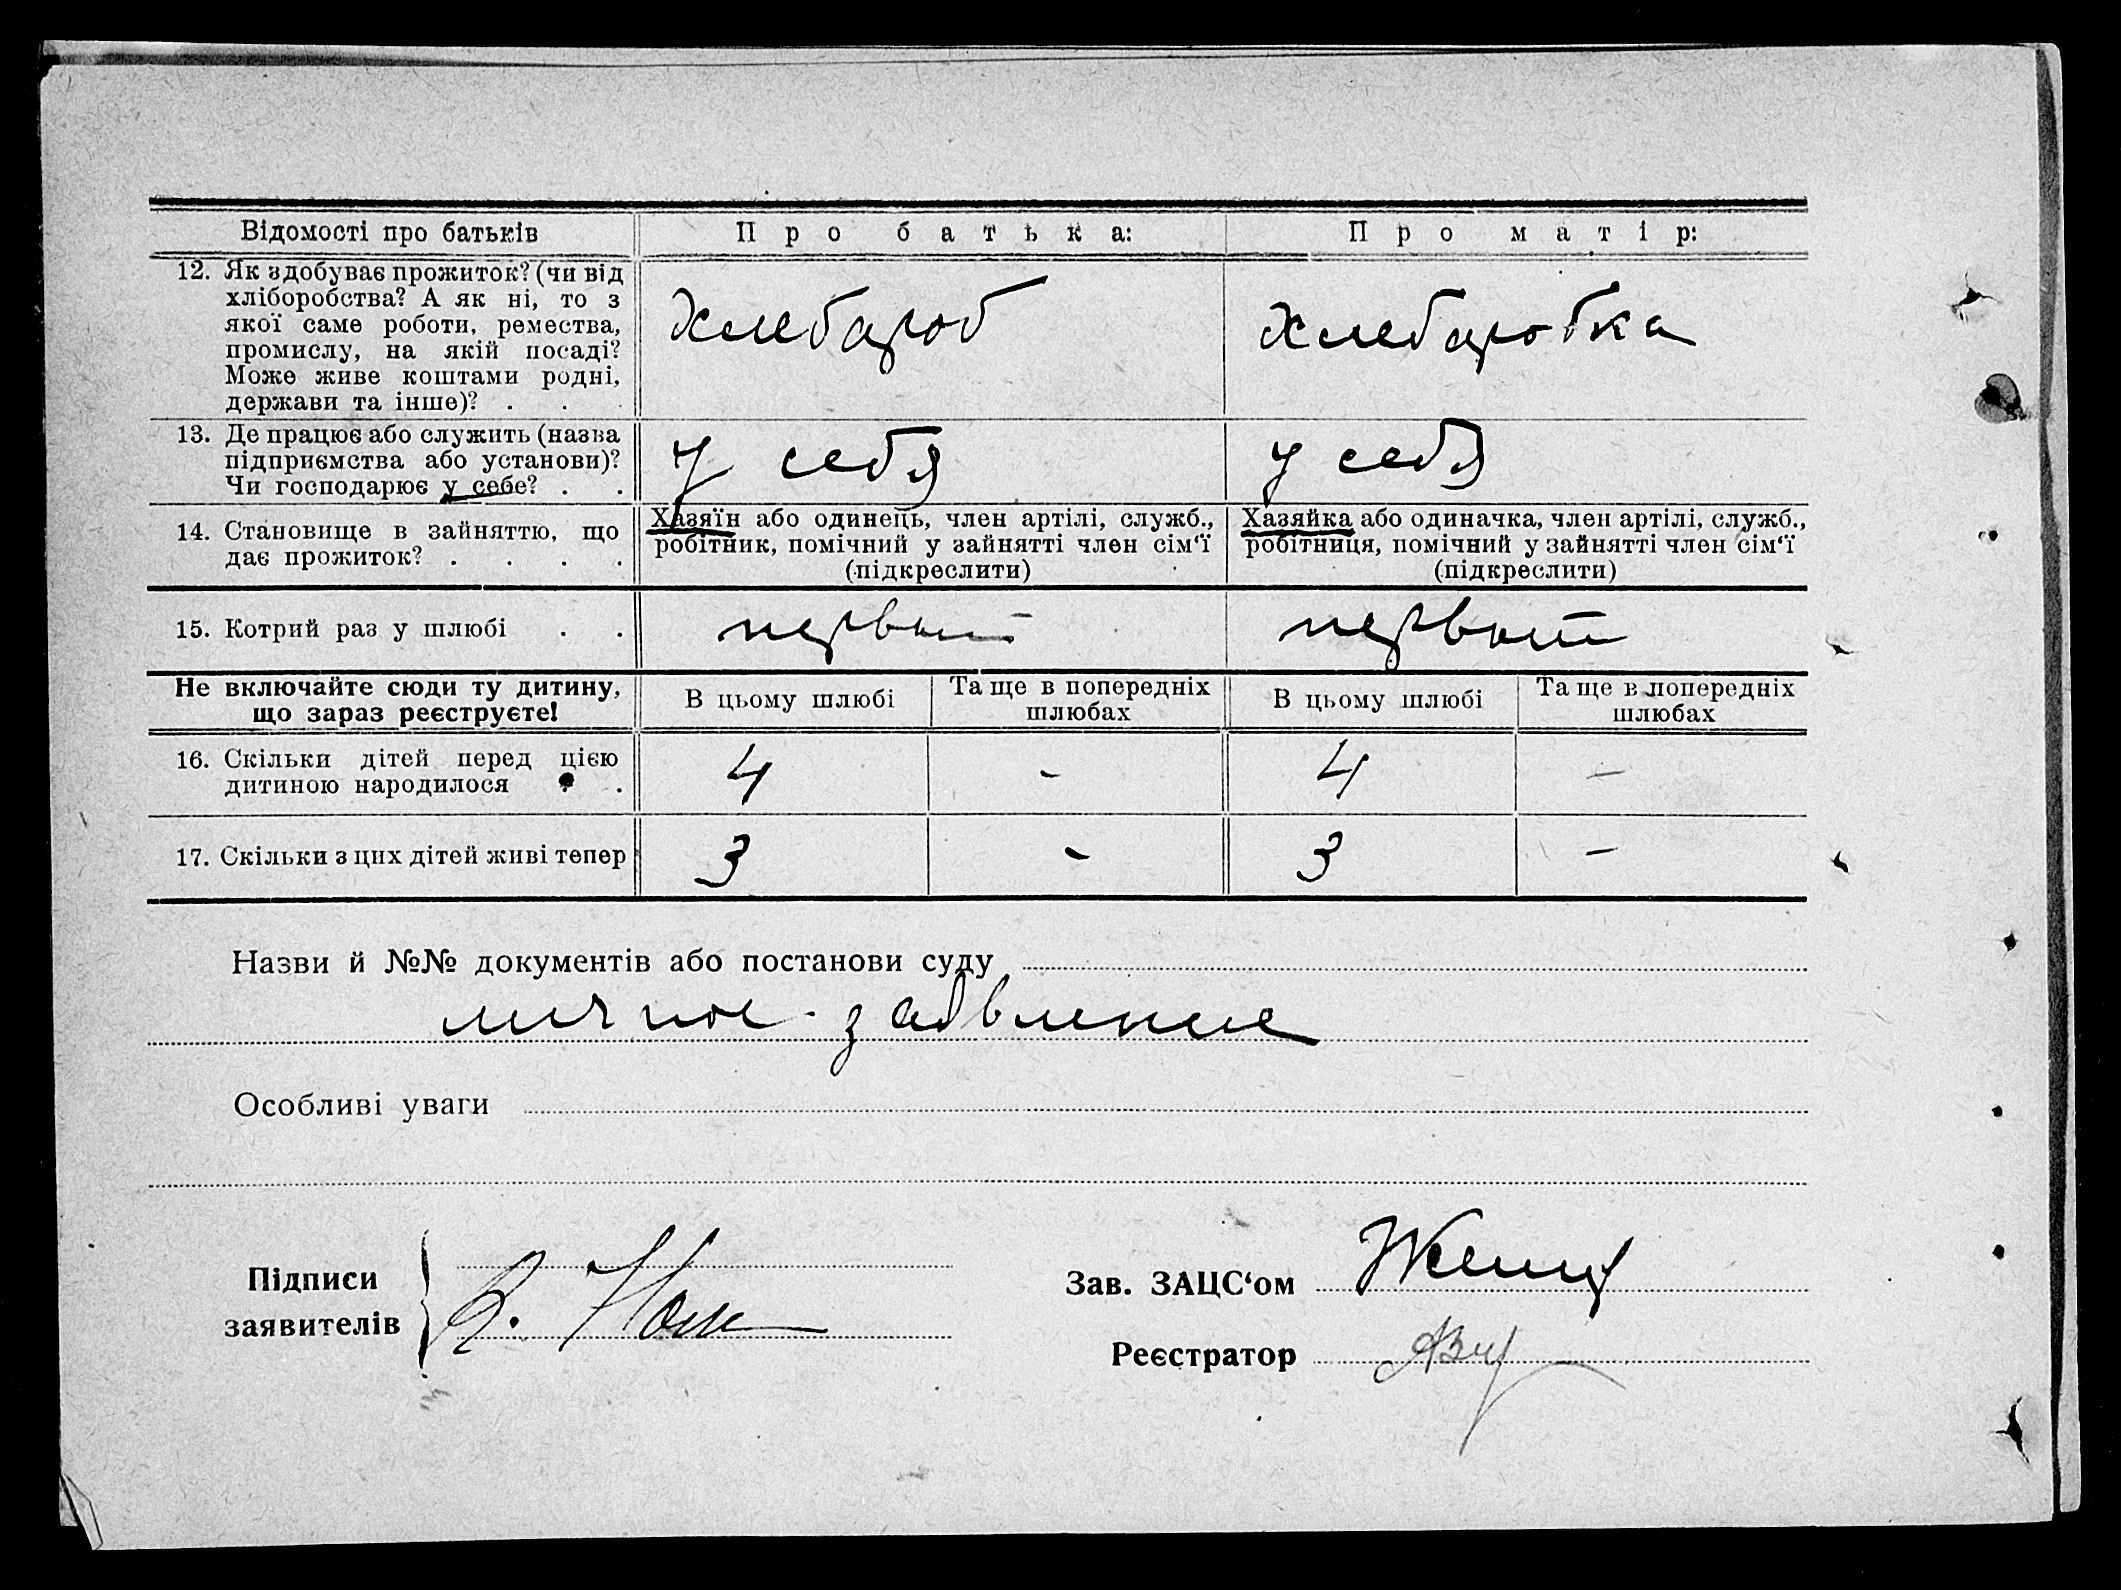 Відомості про батьків
Про батька:
Про матір:
12. Як здобуває прожиток? (чи від
хліборобства? А як ні, то з
якої саме роботи, ремества,
промислу, на якій посаді?
Може живе коштами родні,
держави та інше)? . .
Хлебароб
Хлебаробка
13. Де працює або служить (назва
підприємства або установи)?
Чи господарює у себе? . .
у себя
у себя
14. Становище в зайняттю, що
дає прожиток? . . . .
Хазяїн або одинець, член артілі, служб.,
робітник, помічний у зайнятті член сім‘ї
(підкреслити)
Хазяйка або одиначка, член артілі, служб.,
робітниця, помічний у зайнятті член сім‘ї
(підкреслити)
15. Котрий раз у шлюбі . .
первый
первый
Не включайте сюди ту дитину,
що зараз реєструєте!
В цьому шлюбі
Та ще в попередніх
шлюбах
В цьому шлюбі
Та ще в попередніх
шлюбах
16. Скільки дітей перед цією
дитиною народилося . .
4
-
4
-
17. Скільки з цих дітей живі тепер
3
-
3
-
Назви й №№ документів або постанови суду
личное заявление
Особливі уваги
Підписи
заявителів
Зав. ЗАЦС‘ом
Реєстратор